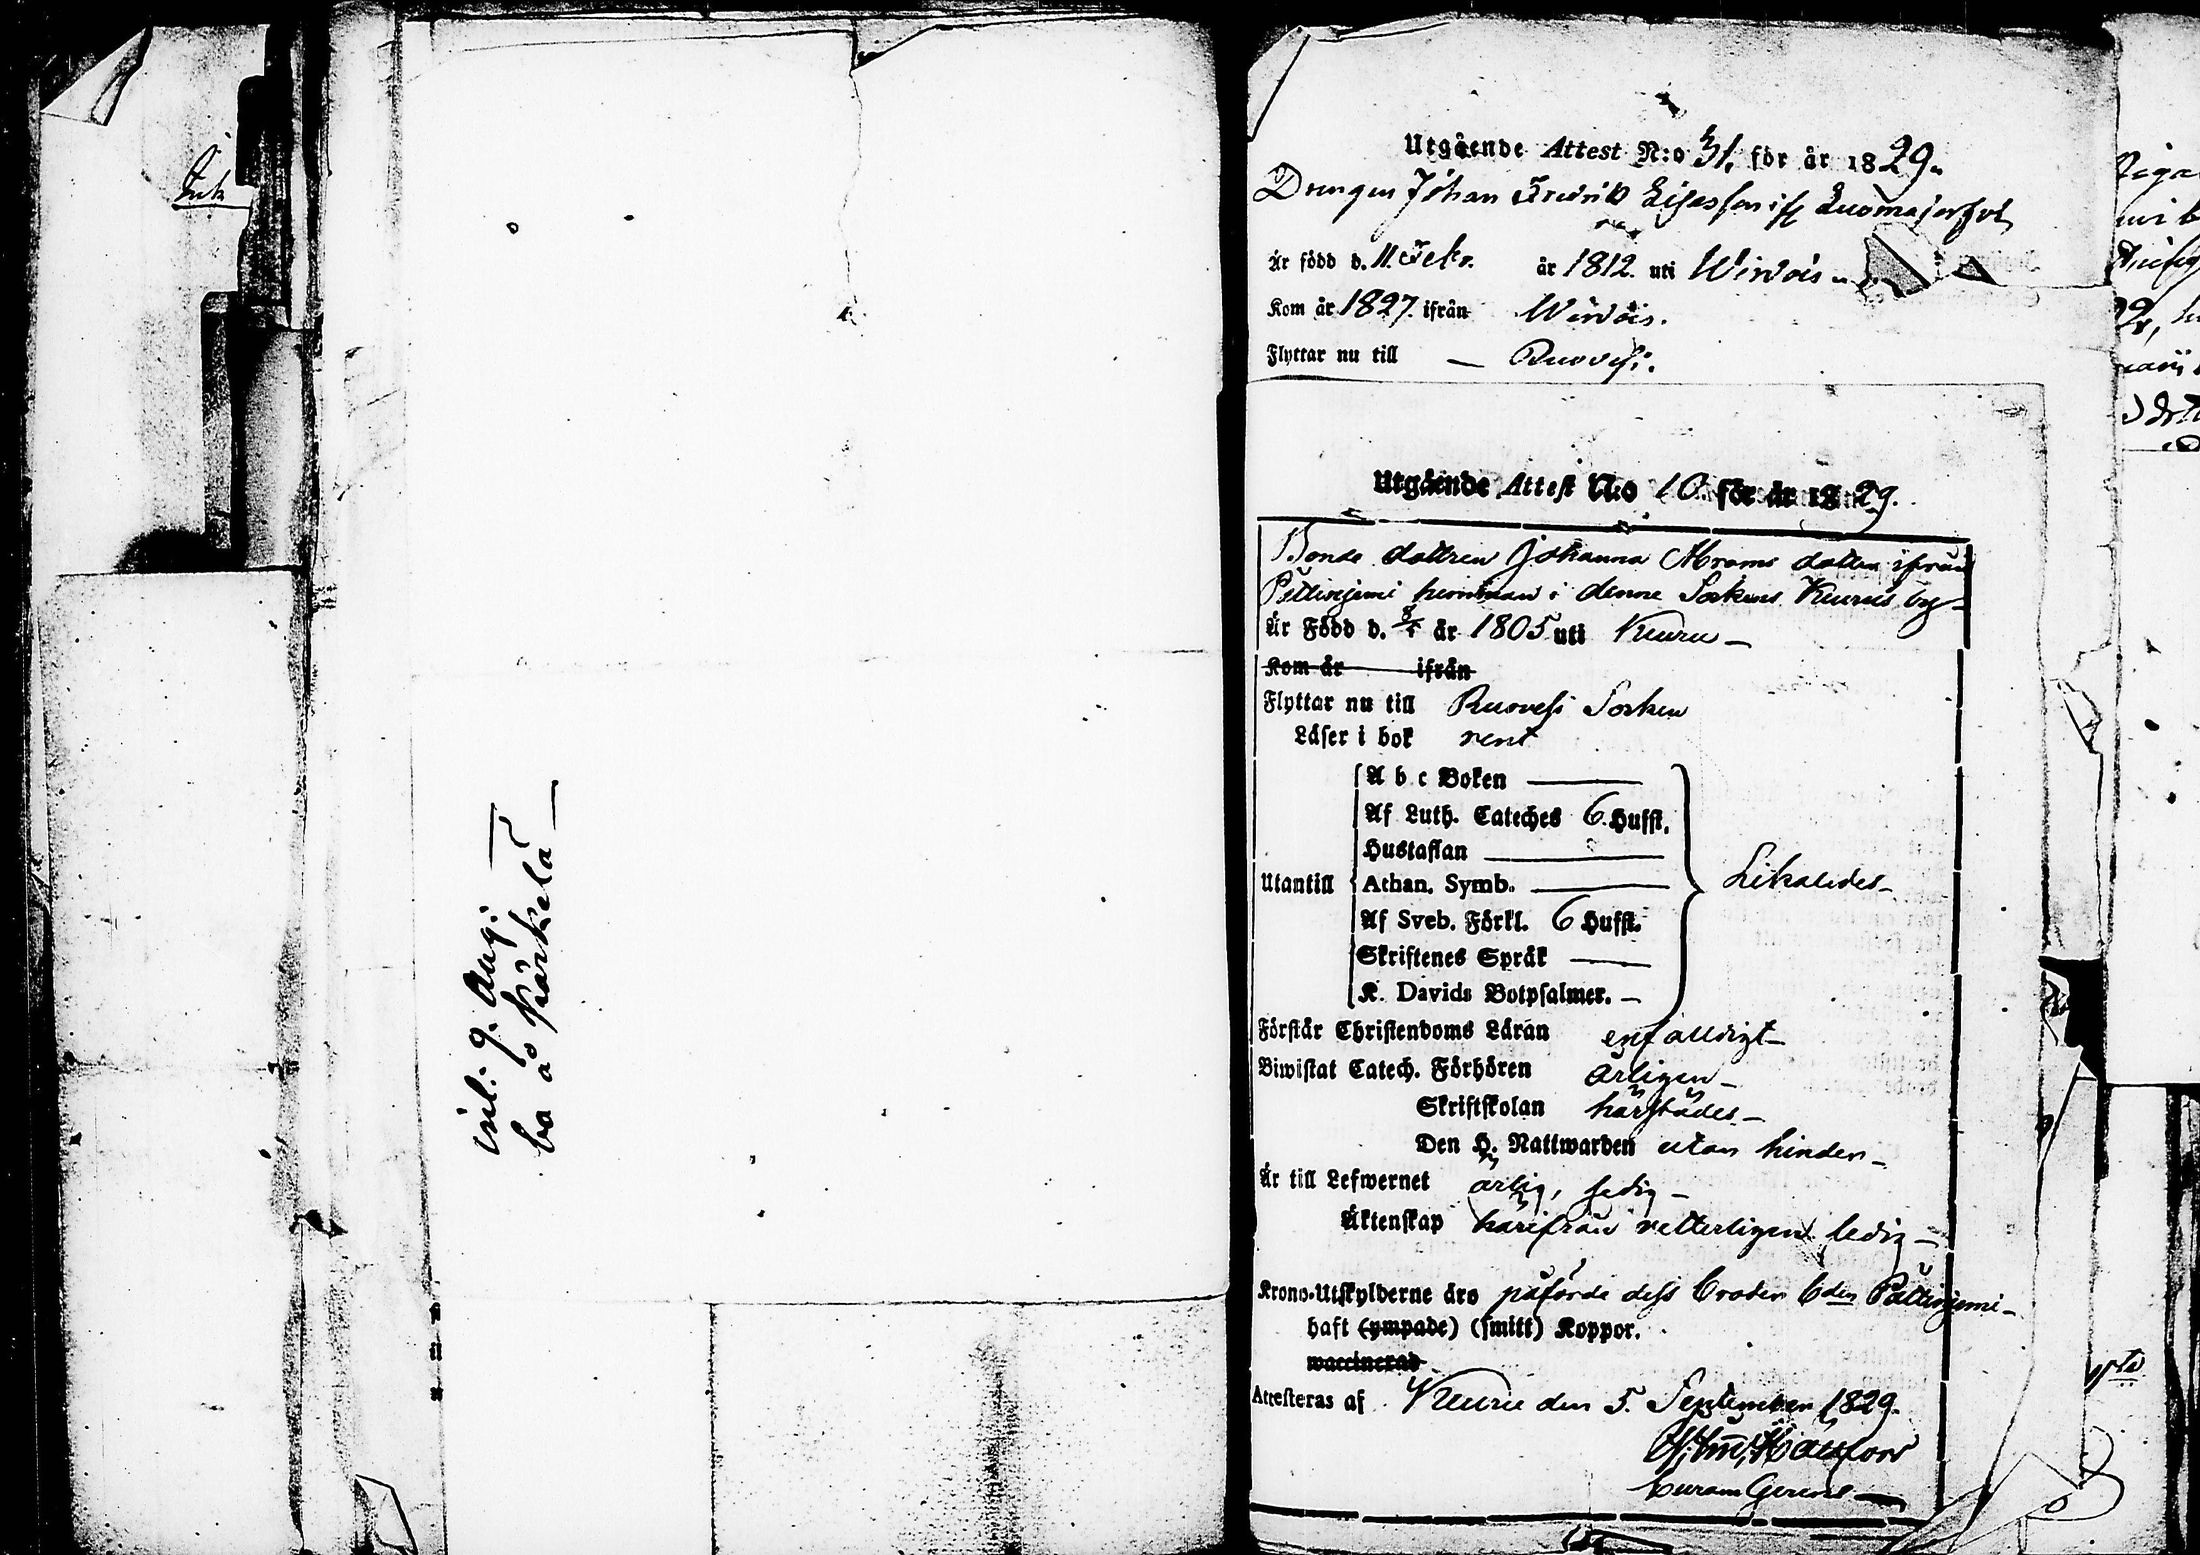 Ink
inl. g. Augi.
bo å Kärkelä
Utgående Attest N:o 31. för år 1829.
Drengen Johan Fredrik ifr
Är född d. 11. Febr. år 1812. uti Wirdois
Kom år 1827 ifrån Wirdois.
Flyttar nu till — Ruovesi.
Utgående Attest N:o 10 för år 1829.
Bonde dottren Johanna Abrams dotter ifrån
hemman i denne Sockens Keurus by
Är Född d. år 1805 uti Keuru
Kom år ifrån
Flyttar nu till Ruovesi Socken
Läser i bok rent
Utantill
A b c Boken
Af Luth. Cateches 6. Hufst.
Hustaflan
Athan. Symb.
Af Sveb. Förkl. 6 Hufst.
Skriftenes Språk
K. Davids Botpsalmer.
Likaledes
Förstår Christendoms Läran enfaldigt
Biwistat Catech. Förhören årligen
Skriftskolan härstädes
Den H. Nattwarden utan hinder
Är till Lefwernet ärlig, sedig
Äktenskap härifrån vetterligen ledig
Krono-Utskylderne äro påförde dess broder
haft (ympade) (smitt) Koppor.
waccinerad
Attesteras af Keuru den 5. September 1829.